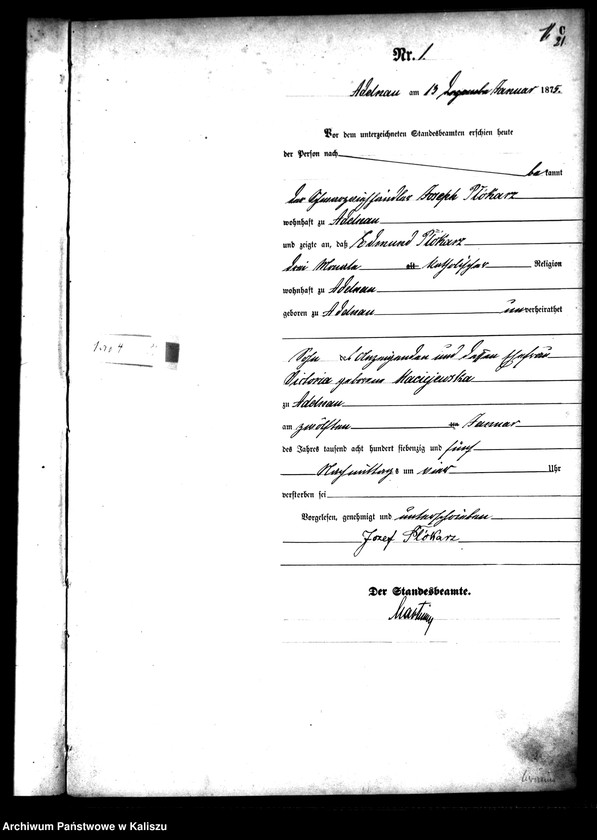 C
21
Nr. 1.
Adelnau am 13 Dezember Januar 1875.
Vor dem unterzeichneten Standesbeamten erschien heute
der Person nach
bekannt
der Schwarzviehhändler Joseph Płókarz
wohnhaft zu Adelnau
und zeigte an, daß Edmund Płókarz
drei Monate alt katholischer Religion
wohnhaft zu Adelnau
geboren zu Adelnau unverheirathet
Sohn des Anzeigenden und dessen Ehefrau
Victoria geborene Maciejewska
zu Adelnau
am zwölften ten Januar
des Jahres tausend acht hundert siebenzig und fünf
Nachmittags um vier Uhr
verstorben sei
Vorgelesen, genehmigt und unterschrieben
Jozef Płókarz
Der Standesbeamte.
Archiwum Państwowe w Kaliszu